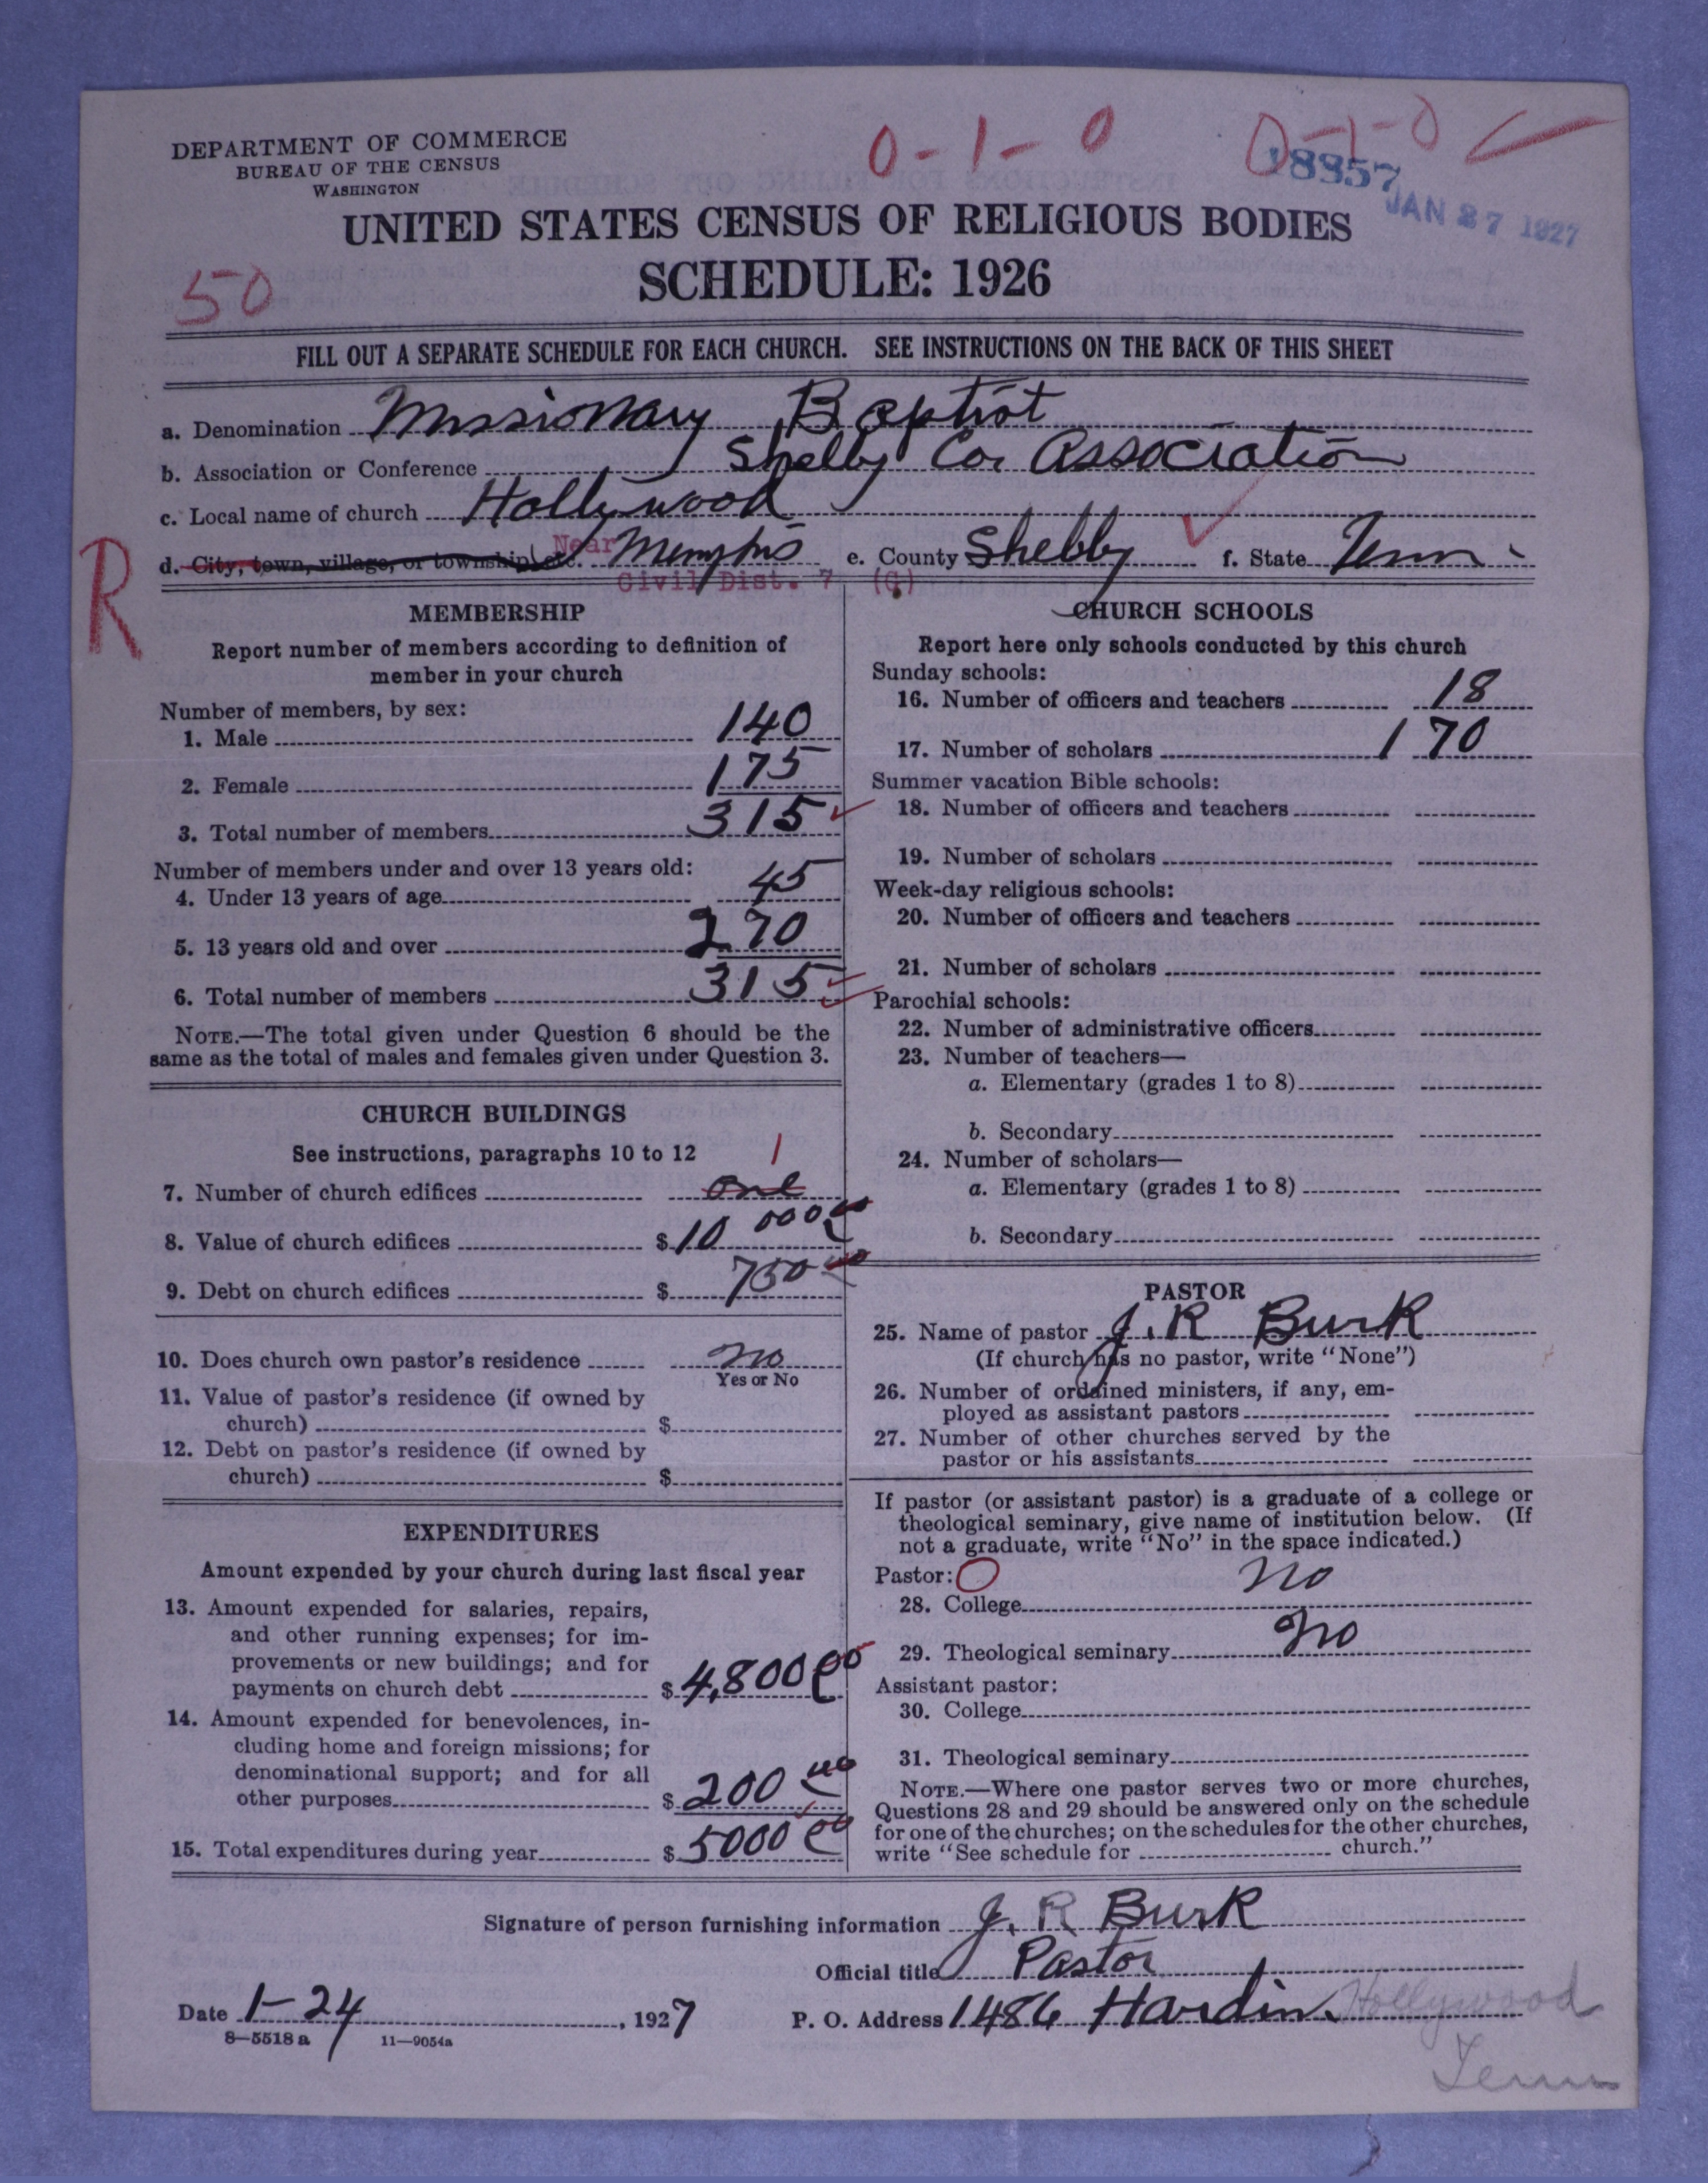 DEPARTMENT OF COMMERCE
BUREAU OF THE CENSUS
WASHINGTON
0-1-0
0-1-0
18857
JAN 27 1927
UNITED STATES CENSUS OF RELIGIOUS BODIES
SCHEDULE: 1926
50
FILL OUT A SEPARATE SCHEDULE FOR EACH CHURCH. SEE INSTRUCTIONS ON THE BACK OF THIS SHEET
a. Denomination Missionary Baptist
b. Association or Conference Shelby Co. Association
c. Local name of church Hollywood
d. City, town, village, or township, etc. Near Memphis e. County Shelby f. State Tenn.
Civil Dist. 7 (G)
R
MEMBERSHIP
Report number of members according to definition of
member in your church
Number of members, by sex:
1. Male 140
2. Female 175
3. Total number of members 315
Number of members under and over 13 years old:
4. Under 13 years of age 45
5. 13 years old and over 270
6. Total number of members 315
NOTE.—The total given under Question 6 should be the
same as the total of males and females given under Question 3.
CHURCH BUILDINGS
See instructions, paragraphs 10 to 12
1
7. Number of church edifices one
8. Value of church edifices $ 10 000 00
9. Debt on church edifices $ 750 00
10. Does church own pastor's residence no
Yes or No
11. Value of pastor's residence (if owned by
church) $
12. Debt on pastor's residence (if owned by
church) $
EXPENDITURES
Amount expended by your church during last fiscal year
13. Amount expended for salaries, repairs,
and other running expenses; for im-
provements or new buildings; and for
payments on church debt $ 4,800 00
14. Amount expended for benevolences, in-
cluding home and foreign missions; for
denominational support; and for all
other purposes $ 200 00
15. Total expenditures during year $ 5000 00
CHURCH SCHOOLS
Report here only schools conducted by this church
Sunday schools:
16. Number of officers and teachers 18
17. Number of scholars 170
Summer vacation Bible schools:
18. Number of officers and teachers
19. Number of scholars
Week-day religious schools:
20. Number of officers and teachers
21. Number of scholars
Parochial schools:
22. Number of administrative officers
23. Number of teachers—
a. Elementary (grades 1 to 8)
b. Secondary
24. Number of scholars—
a. Elementary (grades 1 to 8)
b. Secondary
PASTOR
25. Name of pastor J. R Burk
(If church has no pastor, write "None")
26. Number of ordained ministers, if any, em-
ployed as assistant pastors
27. Number of other churches served by the
pastor or his assistants
If pastor (or assistant pastor) is a graduate of a college or
theological seminary, give name of institution below. (If
not a graduate, write "No" in the space indicated.)
Pastor: O
28. College no
29. Theological seminary no
Assistant pastor:
30. College
31. Theological seminary
NOTE.—Where one pastor serves two or more churches,
Questions 28 and 29 should be answered only on the schedule
for one of the churches; on the schedules for the other churches,
write "See schedule for church."
Signature of person furnishing information J. R Burk
Official title Pastor
Date 1-24, 1927 P. O. Address 1486 Hardin. Hollywood
Tenn
8—5518 a 11—9054a